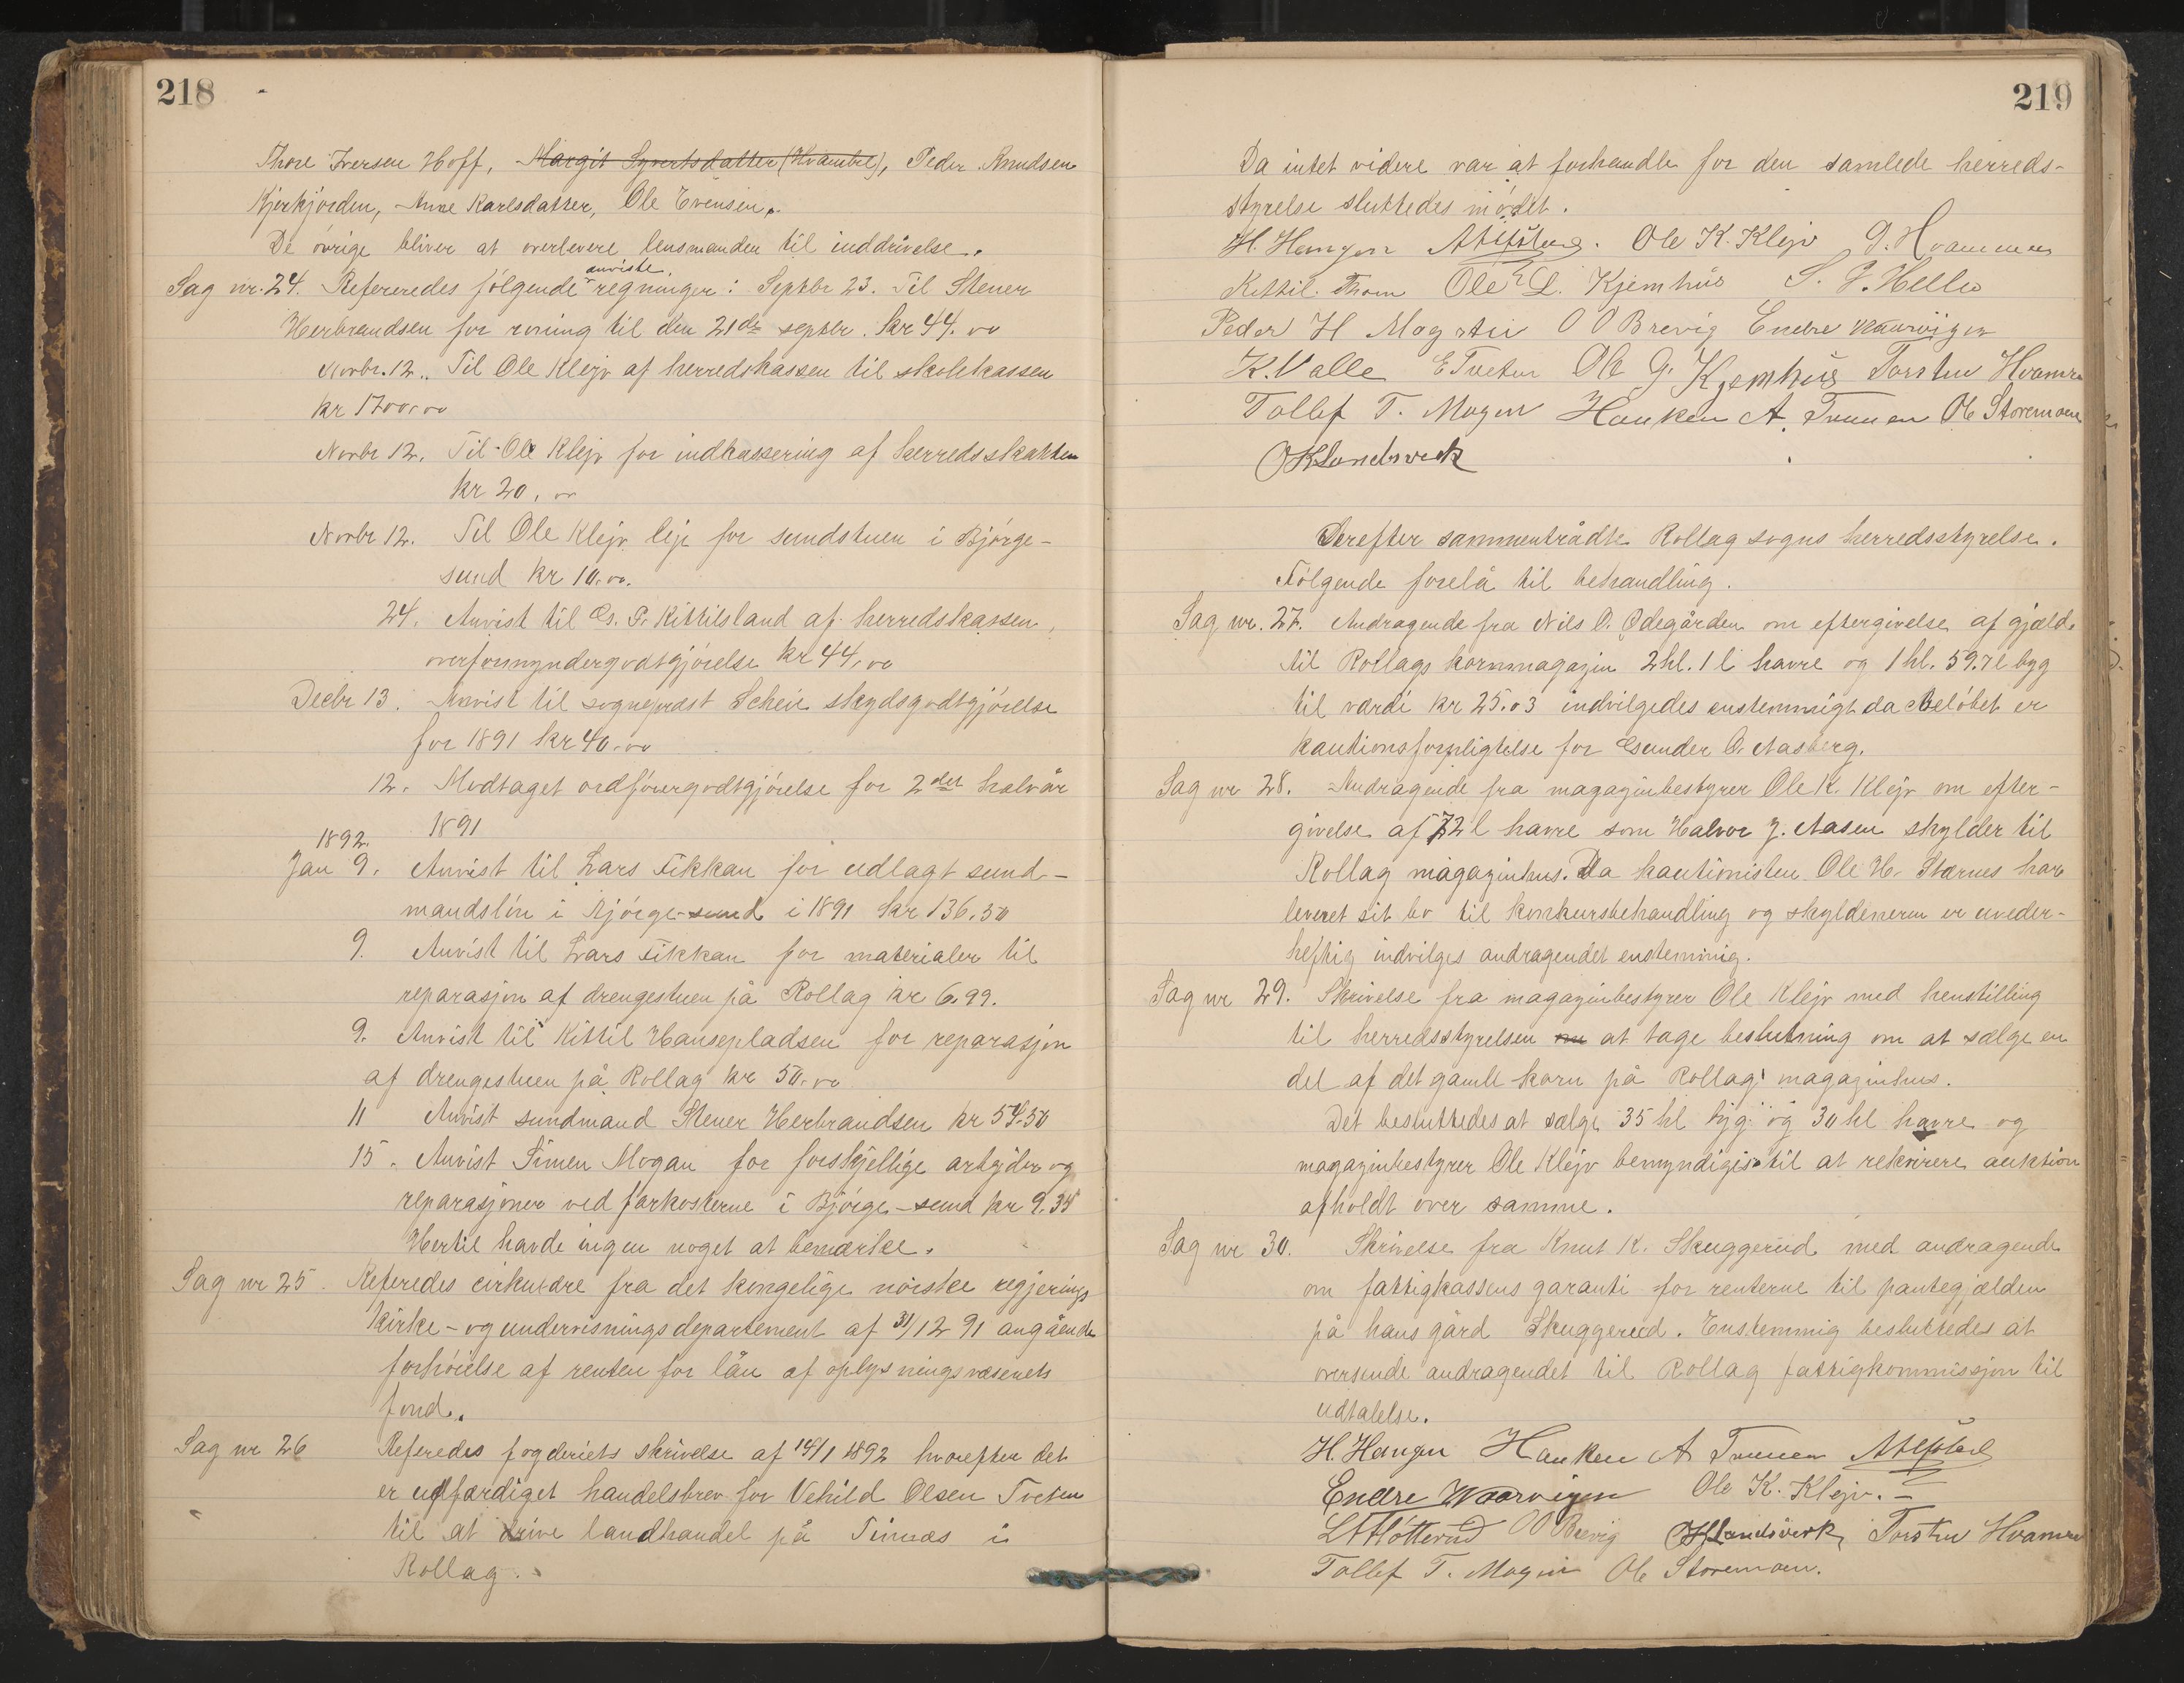 218
Thore Iversen Hoff, Margit Syvertsdatter (Hvambe), Peder Knudsen
Kjerkjorden, Anne Karlsdatter, Ole Evensen.
De övrige bliver at overlevere lensmanden til inddrivelse.
Sag nr. 24. Refereredes følgende anviste regninger: Septbr 23. Til Stener
Herbrandsen for roning til den 21de septbr. kr 44.00
Novbr. 12. Til Ole Klejv af herredskassen til skolekassen
kr 1700.00
Novbr 12. Til Ole Klejv for indkassering af herredsskatten
kr 20,00
Novbr 12. Til Ole Klejv leje for sundstuen i Bjørge-
sund kr 10.00.
24. Anvist til G. P. Kittilsland af herredskassen,
overformyndergodtgjörelse kr 44,00
Decbr 13. Anvist til sognepræst Scheie skydsgodtgjörelse
for 1891 kr 40.00
12. Modtaget ordförergodtgjörelse for 2det halvår
1891
1892.
Jan 9. Anvist til Lars Fikkan for udlagt sund-
mandslön i Björge-sund i 1891 kr 136.50
9. Anvist til Lars Fikkan for materialer til
reparasjon af drengestuen på Rollag kr 6.99.
9. Anvist til Kittil Hansepladsen for reparasjon
af drengestuen på Rollag kr 50.00
11 Anvist sundmand Stener Herbrandsen kr 54.50
15. Anvist Simen Mogan for forskjellige arbejder og
reparasjoner ved farkosterne i Björge-sund kr 9.35
Hertil havde ingen noget at bemærke.
Sag nr 25. Referedes cirkulære fra det kongelige norske regjerings
kirke- og undervisningsdepartement af 31/12 91 angående
forhöielse af renten for lån af oplysningsvæsenets
fond.
Sag nr 26 Referedes fogderiets skrivelse af 14/1 1892 hvorefter det
er udfærdiget handelsbrev for Vehild Olsen Tveten
til at drive landhandel på Timæs i
Rollag.
219
Da intet videre var at forhandle for den samlede herreds-
styrelse sluttedes mödet.
H. Haugen Ole K. Klejv G. Hvammen
Kittil Thom Ole L. Kjemhus S. P. Helle
Peder H Mogstu O O Brevig Endre Kaurvigen
K. Valle E Tveten Ole G. Kjemhus Torsten Hvamen
Tollef T. Mogen Hauken A. Traaen Ole Storemoen
O K Landsverk
Derefter sammentrådte Rollag sogns herredsstyrelse.
Fölgende forelå til behandling.
Sag nr. 27. Andragende fra Nils O. Ödegården om eftergivelse af gjæld
til Rollags kornmagazin 2 hl. 1 l havre og 1 hl. 59.7 l byg
til værdi kr 25.03 indvilgedes enstemmigt da Belöbet er
kautionsforpligtelse for Gunder O. Aasberg.
Sag nr 28. Andragende fra magazinbestyrer Ole K. Klejv om efter-
givelse af 72 l havre som Halvor J. Aasen skylder til
Rollag magazinhus. Da kautionisten Ole H. Stærnes har
leveret sit bo til konkursbehandling og skyldneren er uveder-
heftig indvilges andragendet enstemmig.
Sag nr 29. Skrivelse fra magazinbestyrer Ole Klejv med henstilling
til herredsstyrelsen om at tage beslutning om at sælge en
del af det gamle korn på Rollags magazinhus.
Det besluttedes at sælge 35 hl byg og 30 hl havre og
magazinbestyrer Ole Klejv bemyndiges til at rekvirere auktion
afholdt over samme.
Sag nr 30. Skrivelse fra Knut K. Skuggerud med andragende
om fattigkassens garanti for renterne til pantegjælden
på hans gård Skuggerud. Enstemmig besluttedes at
oversende andragendet til Rollag fattigkommissjon til
udtalelse.
H. Haugen Hauken A Traaen
Endre Waarvigen Ole K. Klejv.
O O Brevig O K Landsverk Torsten Hvamen
Tollef T. Mogen Ole Storemoen.